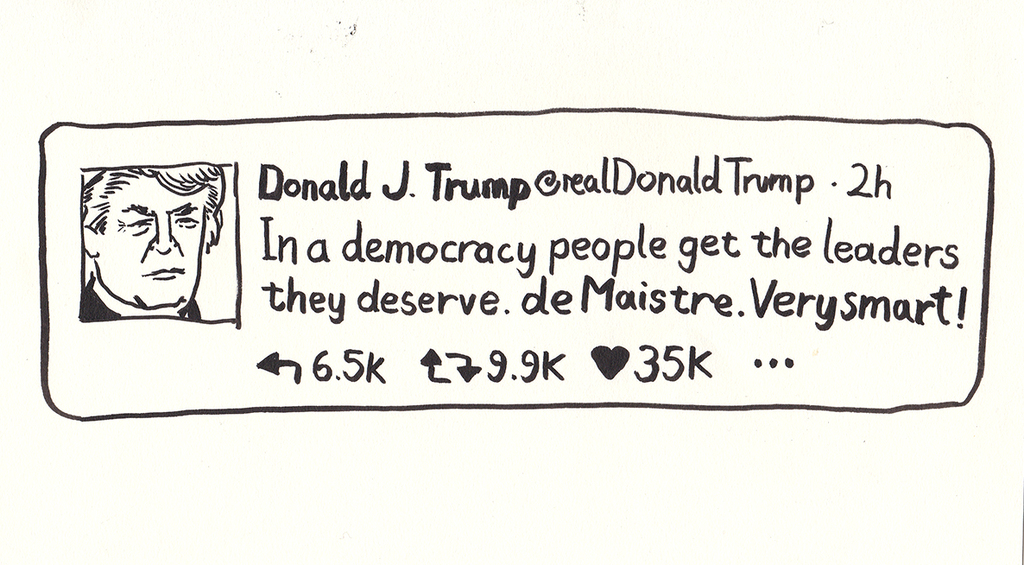 Donald J. Trump @realDonaldTrump · 2h
In a democracy people get the leaders
they deserve. de Maistre. Very smart!
6.5K 9.9K 35K ...